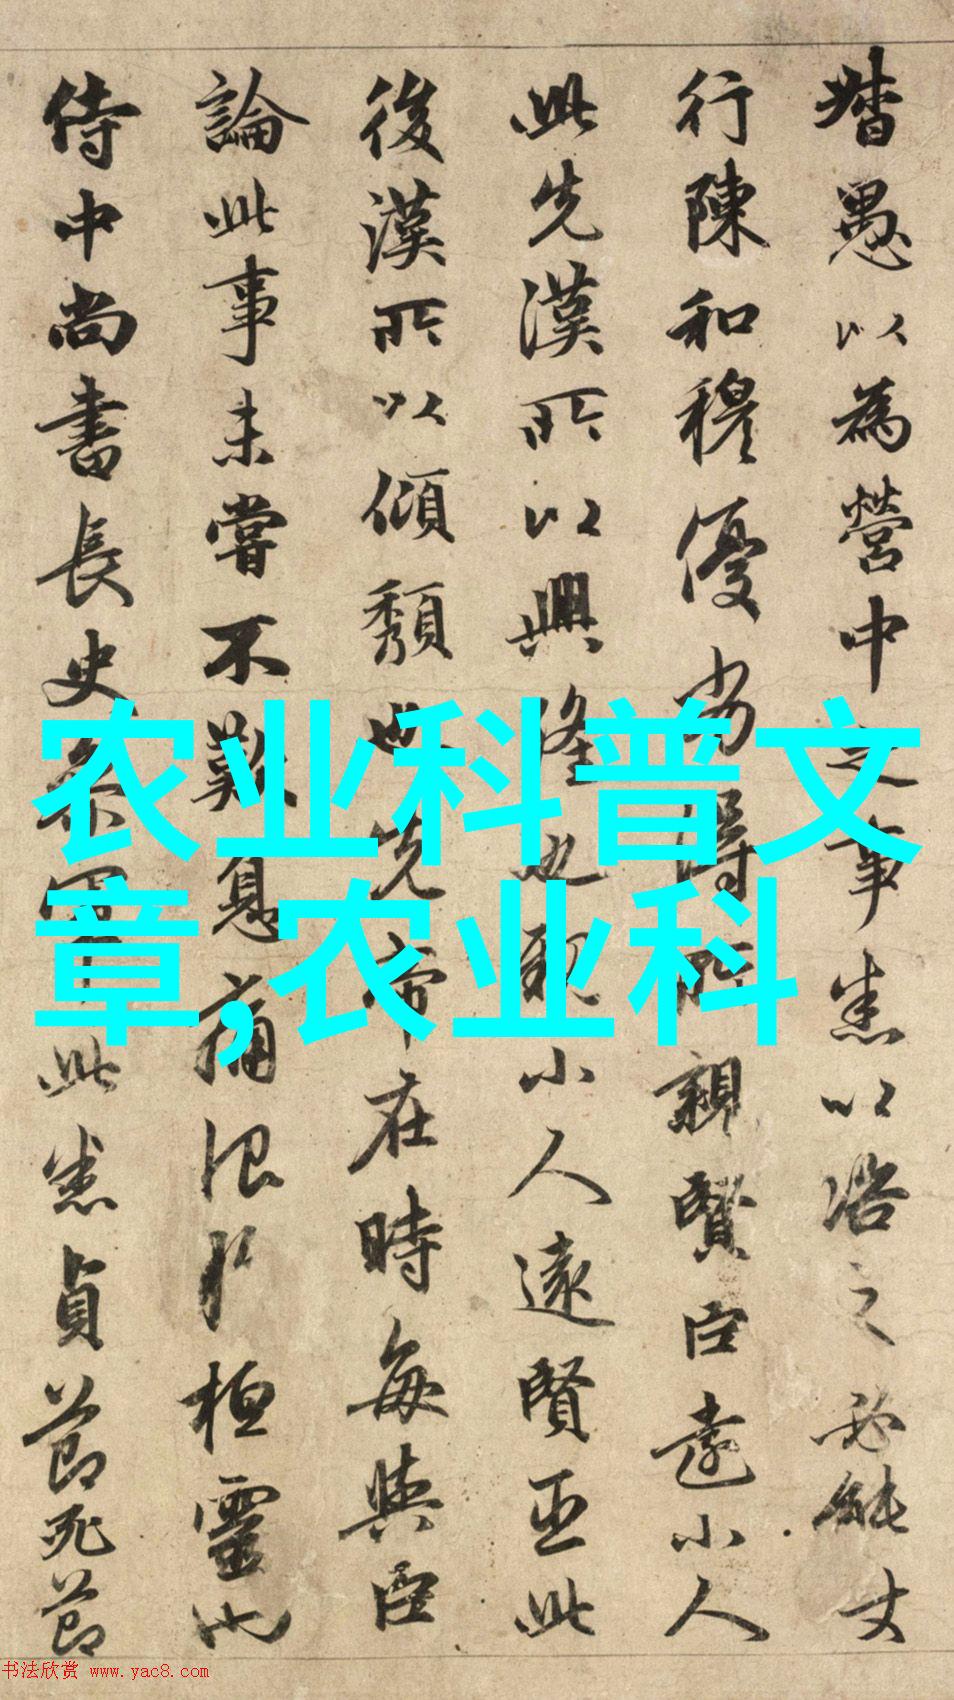 督愚以為營中之事悉以諮之必能丈
行陳和穆優劣得所親賢臣遠小人
此先漢所以興隆也親小人遠賢臣此
後漢所以傾頹也先帝在時每與臣
論此事未嘗不歎息痛恨於桓靈也
侍中尚書長史參軍此悉貞節死節
农业科普文
章,农业科
书法欣赏 www.yac8.com